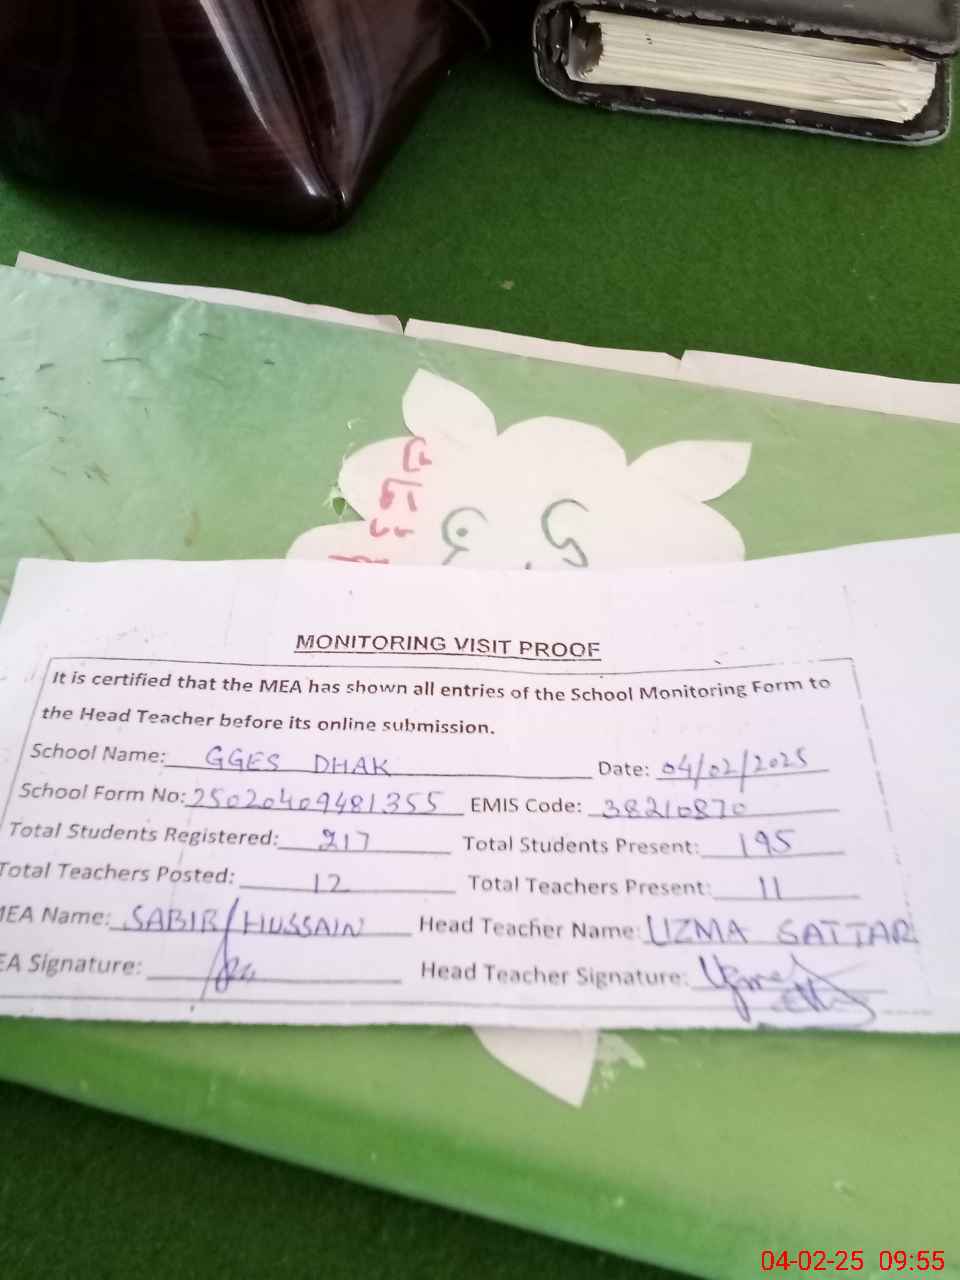 MONITORING VISIT PROOF
It is certified that the MEA has shown all entries of the School Monitoring Form to
the Head Teacher before its online submission.
School Name: GGES DHAK Date: 04/02/2025
School Form No: 25020409481355 EMIS Code: 38210870
Total Students Registered: 217 Total Students Present: 195
Total Teachers Posted: 12 Total Teachers Present: 11
MEA Name: SABIR HUSSAIN Head Teacher Name: UZMA SATTAR
EA Signature: Head Teacher Signature:
04-02-25 09:55